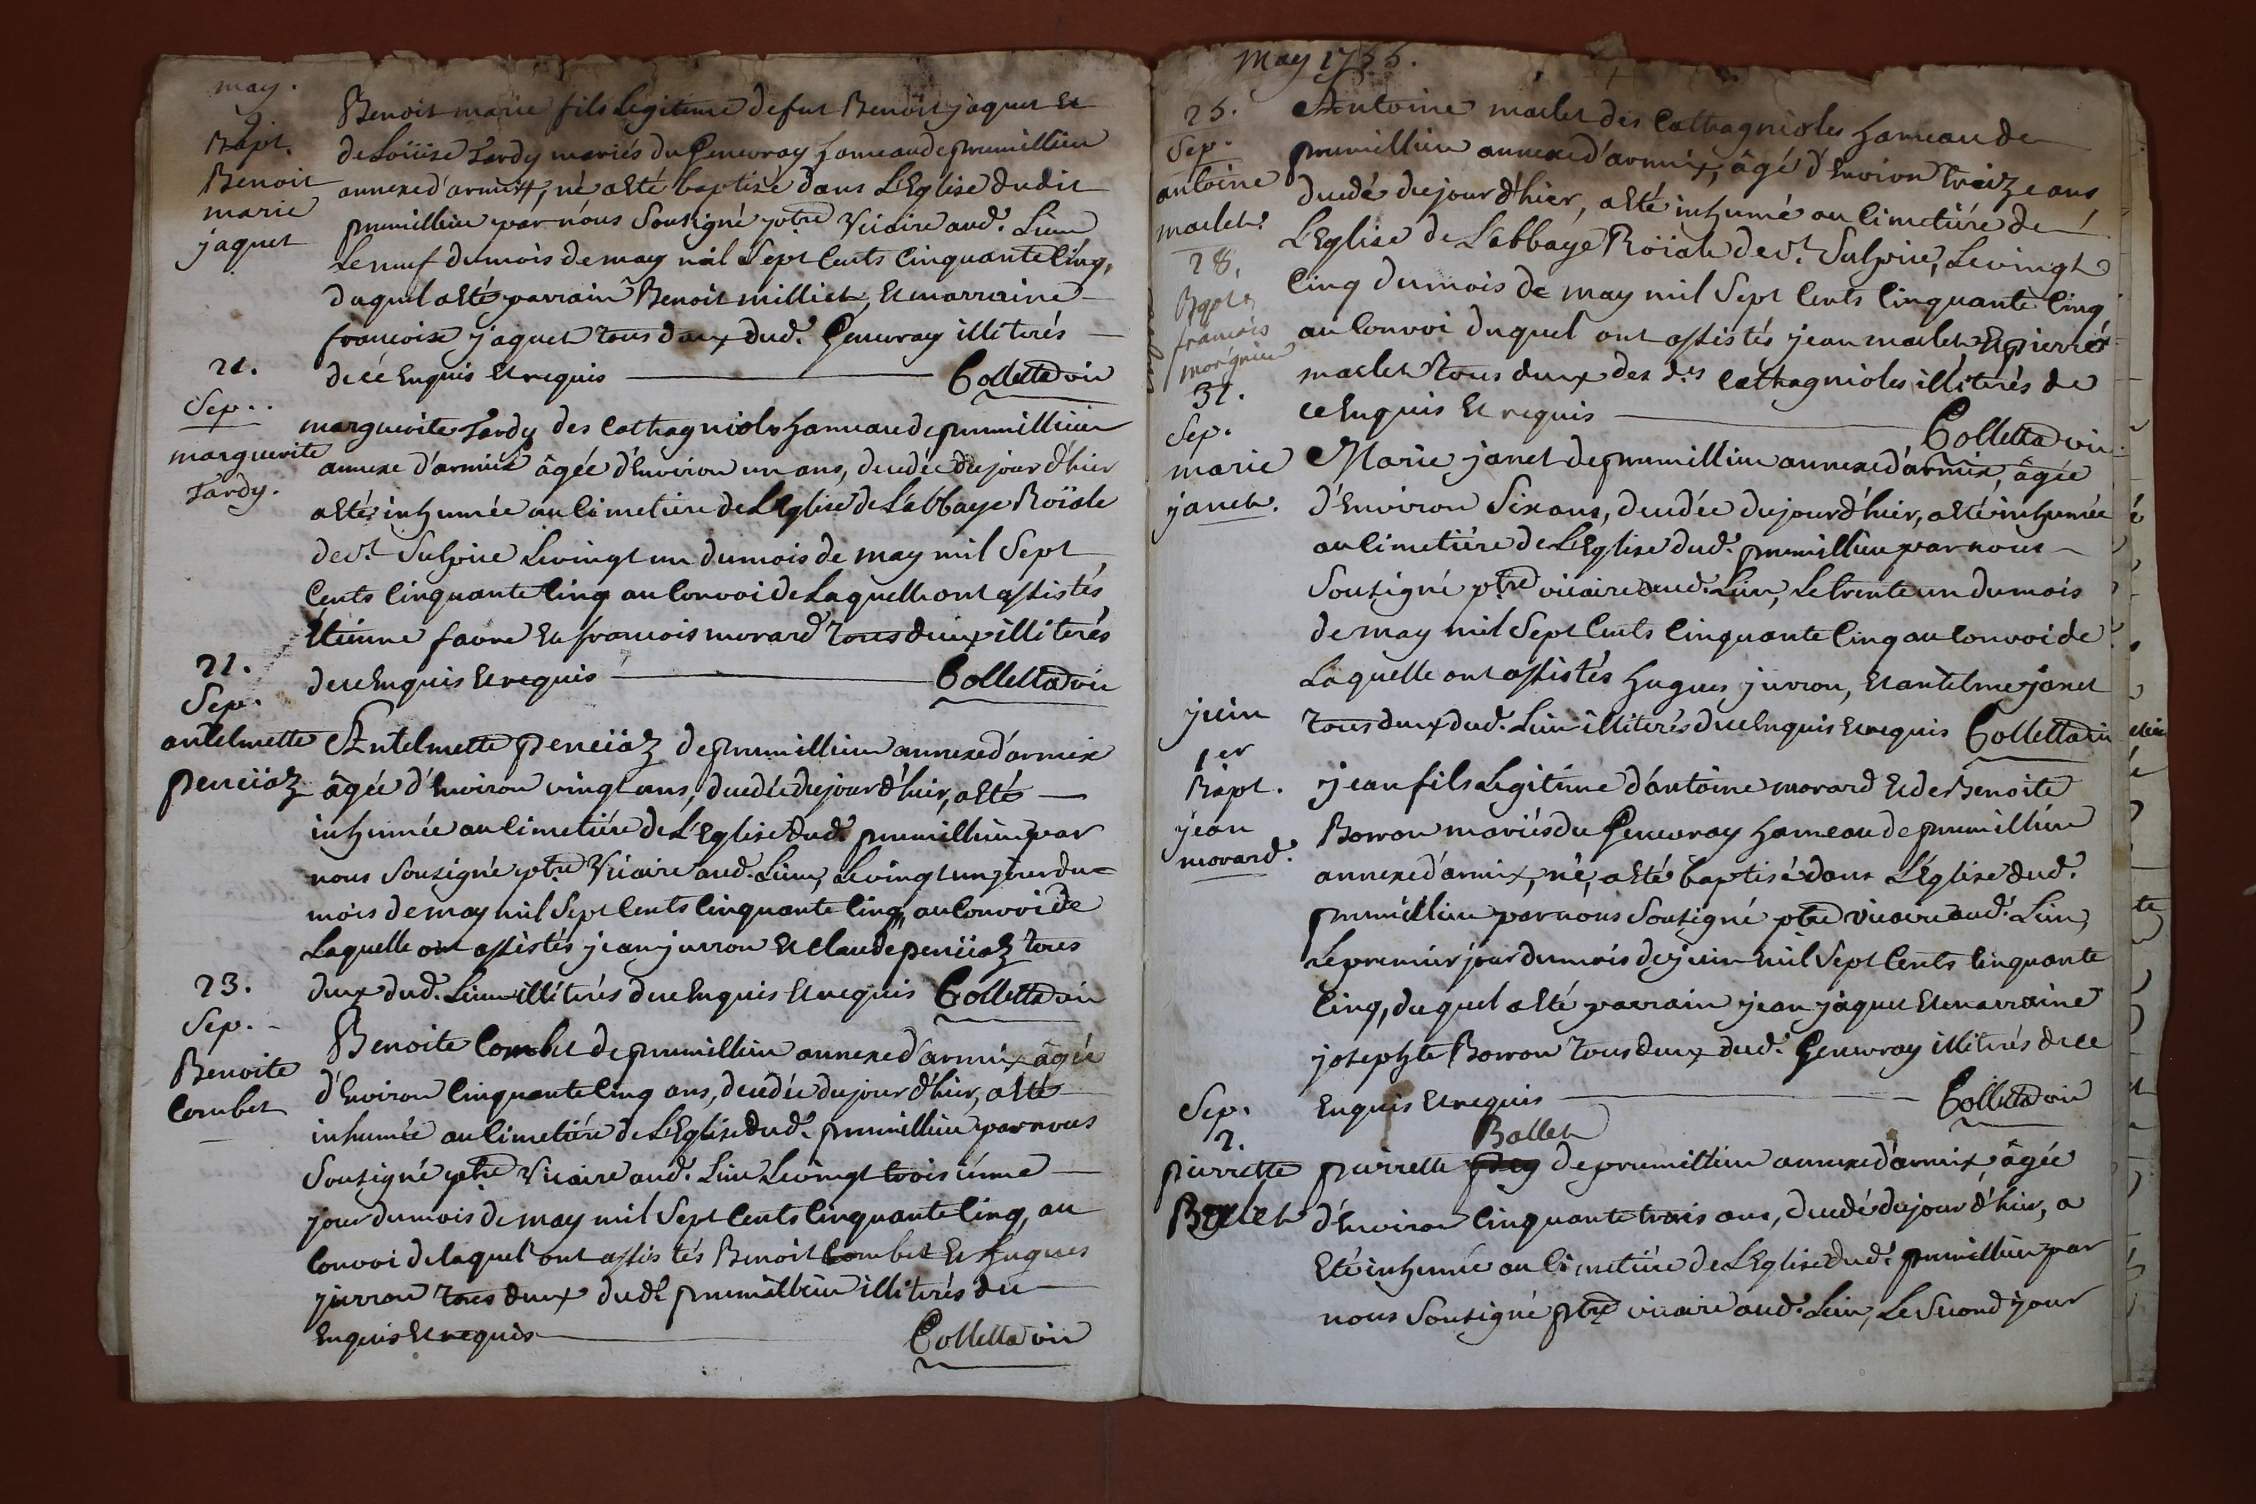 may.
9
Bapt.
Benoit
marie
jaquet
Benoit marie fils Legitime de fut Benoit jaquet Et
de Loüise Tardy mariés du Genevray hameau de prumillieu
annexe d'armix, né, a Eté baptisé dans L'Eglise dudit
prumillieu par nous Sousigné ptre Vicaire aud. Lieu
Le neuf du mois de may mil Sept Cents Cinquante Cinq,
duquel a Eté parrain Benoit milliet, Et marraine
francoise jaquet tous deux dud. Genevray illiterés
de ce Enquis Et requis Colletta vic
21.
Sep.
marguerite
Tardy.
marguerite Tardy des Cathagnioles hameau de prumillieu
annexe d'armix âgée d'Environ un ans, decedée du jour d'hier
a Eté inhumée au Cimetiere de L'Eglise de L'abbaye Roïale
de St. Sulpice Le vingt un du mois de may mil Sept
Cents Cinquante Cinq au Convoi de Laquelle ont assistés
Etienne favre Et francois morard tous deux illiterés
de ce Enquis Et requis Colletta vic
21.
Sep.
antelmette
perciiaz
Antelmette perciiaz de prumillieu annexe d'armix
âgée d'Environ vingt ans, decedée du jour d'hier, a Eté
inhumée au Cimetiére de L'Eglise dud. prumillieu par
nous Sousigné ptre Vicaire aud. Lieu, Le vingt un jour du
mois de may mil Sept Cents Cinquante Cinq, au Convoi de
Laquelle ont assistés jean jurron Et Claude perciiaz tous
deux dud. Lieu illiterés de ce Enquis Et requis Colletta vic
23.
Sep.
Benoite
Combet
Benoite Combet de prumillieu annexe d'armix âgée
d'Environ Cinquante Cinq ans, decedée du jour d'hier, a Eté
inhumée au Cimetiére de L'Eglise dud. prumillieu par nous
Sousigné ptre Vicaire aud. Lieu Le vingt troisiéme
jour du mois de may mil Sept Cents Cinquante Cinq, au
Convoi de laquel ont assistés Benoit Combet Et Hugues
jurron tous deux dud. prumillieu illiterés de ce
Enquis Et requis Colletta vic
May 1755.
25.
Sep.
antoine
marlet
Antoine marlet des Cathagnioles hameau de
prumillieu annexe d'armix, âgé d'Environ treize ans
decedé du jour d'hier, a Eté inhumé au Cimetiére de
L'Eglise de L'abbaye Roïale de St. Sulpice, Le vingt
Cinq du mois de may mil Sept Cents Cinquante Cinq
au Convoi duquel ont assistés jean marlet Et pierre
marlet tous deux des ds. Cathagnioles illiterés de
ce Enquis Et requis Colletta vic
28.
Bapt.
francois
morgnieu
31.
Sep.
marie
janet.
Marie janet de prumillieu annexe d'armix, âgée
d'Environ Six ans, decedée du jour d'hier, a Eté inhumée
au Cimetiére de L'Eglise dud. prumillieu par nous
Sousigné ptre vicaire aud. Lieu, Le trente un du mois
de may mil Sept Cents Cinquante Cinq au Convoi de
Laquelle ont assistés hugues jurron, Et antelme janet
tous deux dud. Lieu illiterés de ce Enquis Et requis Colletta vic
juin
1er
Bapt.
jean
morard.
jean fils Legitime d'antoine morard Et de Benoite
Borron mariés du Genevray hameau de prumillieu
annexe d'armix, né, a Eté baptisé dans L'Eglise dud.
prumillieu par nous Sousigné ptre vicaire aud. Lieu,
Le premier jour du mois de juin mil Sept Cents Cinquante
Cinq, duquel a Eté parrain jean jaquet Et marraine
josephte Borron tous deux dud. Genevray illiterés de ce
Enquis Et requis Colletta vic
Sep.
2.
pierrette
Ballet
Ballet
pierrette de prumillieu annexe d'armix âgée
d'Environ Cinquante trois ans, decedé du jour d'hier, a
Eté inhumée au Cimetiére de L'Eglise dud. prumillieu par
nous Sousigné ptre vicaire aud. Lieu, Le Second jour